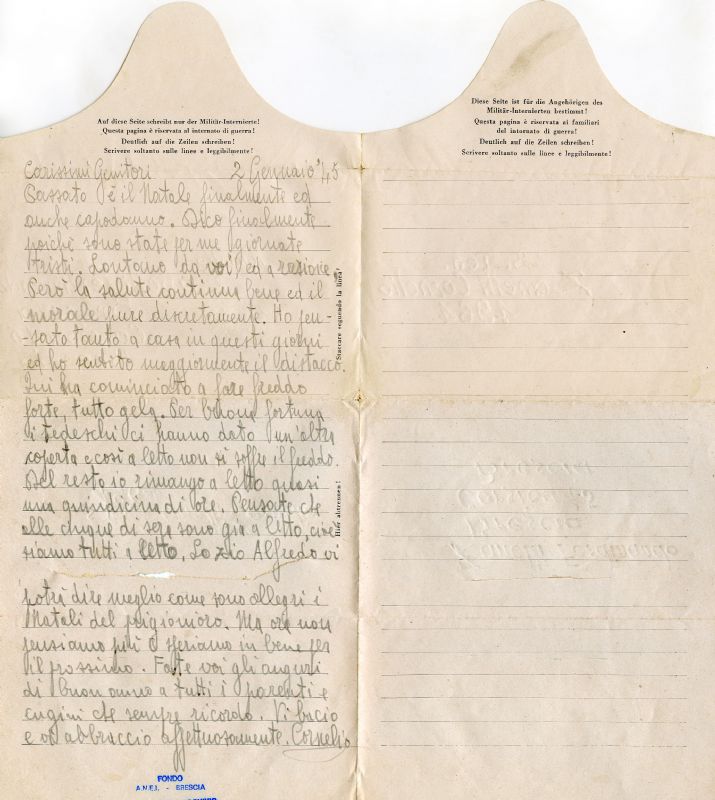 Auf diese Seite schreibt nur der Militär-Internierte!
Questa pagina è riservata al internato di guerra!
Deutlich auf die Zeilen schreiben!
Scrivere soltanto sulle linee e leggibilmente!
Carissimi Genitori 2 Gennaio '45
Passato è il Natale finalmente ed
anche capodanno. Dico finalmente
poiché sono state per me giornate
tristi. Lontano da voi ed a razione.
Però la salute continua bene ed il
morale pure discretamente. Ho pen-
sato tanto a casa in questi giorni
ed ho sentito maggiormente il distacco.
Qui ha cominciato a fare freddo
forte, tutto gela. Per buona fortuna
i tedeschi ci hanno dato un'altra
coperta e così a letto non si soffre il freddo.
Del resto io rimango a letto quasi
una quindicina di ore. Pensate che
alle cinque di sera sono già a letto, cioè
siamo tutti a letto. Lo zio Alfredo vi
potrà dire meglio come sono allegri i
Natali del prigioniero. Ma ora non
pensiamo più e speriamo in bene per
il prossimo. Fate voi gli auguri
di buon anno a tutti i parenti e
cugini che sempre ricordo. Vi bacio
e vi abbraccio affettuosamente. Cornelio
Staccare seguendo la linea!
Hier abtrennen!
FONDO
A.N.E.I. - BRESCIA
Diese Seite ist für die Angehörigen des
Militär-Internierten bestimmt!
Questa pagina è riservata ai familiari
del internato di guerra!
Deutlich auf die Zeilen schreiben!
Scrivere soltanto sulle linee e leggibilmente!